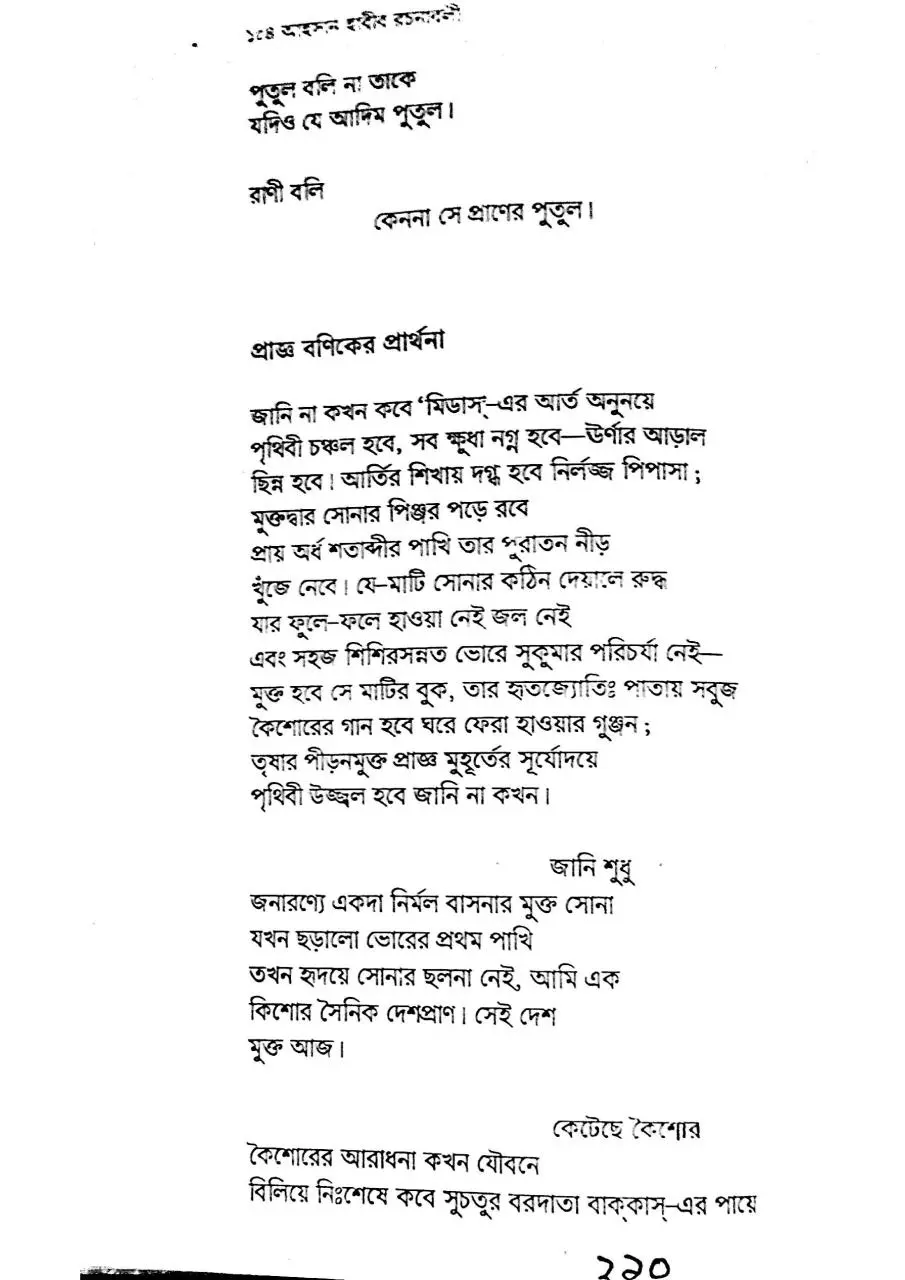 ১৫৪ আহসান হাবীব রচনাবলী
পুতুল বলি না তাকে
যদিও যে আদিম পুতুল।
রাণী বলি
কেননা সে প্রাণের পুতুল।
প্রাজ্ঞ বণিকের প্রার্থনা
জানি না কখন কবে ‘মিডাস্’-এর আর্ত অনুনয়ে
পৃথিবী চঞ্চল হবে, সব ক্ষুধা নগ্ন হবে—ঊর্ণার আড়াল
ছিন্ন হবে। আর্তির শিখায় দগ্ধ হবে নির্লজ্জ পিপাসা ;
মুক্তদ্বার সোনার পিঞ্জর পড়ে রবে
প্রায় অর্ধ শতাব্দীর পাখি তার পুরাতন নীড়
খুঁজে নেবে। যে-মাটি সোনার কঠিন দেয়ালে রুদ্ধ
যার ফুলে-ফলে হাওয়া নেই জল নেই
এবং সহজ শিশিরসন্নত ভোরে সুকুমার পরিচর্যা নেই—
মুক্ত হবে সে মাটির বুক, তার হৃতজ্যোতিঃ পাতায় সবুজ
কৈশোরের গান হবে ঘরে ফেরা হাওয়ার গুঞ্জন ;
তৃষার পীড়নমুক্ত প্রাজ্ঞ মুহূর্তের সূর্যোদয়ে
পৃথিবী উজ্জ্বল হবে জানি না কখন।
জানি শুধু
জনারণ্যে একদা নির্মল বাসনার মুক্ত সোনা
যখন ছড়ালো ভোরের প্রথম পাখি
তখন হৃদয়ে সোনার ছলনা নেই, আমি এক
কিশোর সৈনিক দেশপ্রাণ। সেই দেশ
মুক্ত আজ।
কেটেছে কৈশোর
কৈশোরের আরাধনা কখন যৌবনে
বিলিয়ে নিঃশেষে কবে সুচতুর বরদাতা বাক্কাস্-এর পায়ে
২৯০